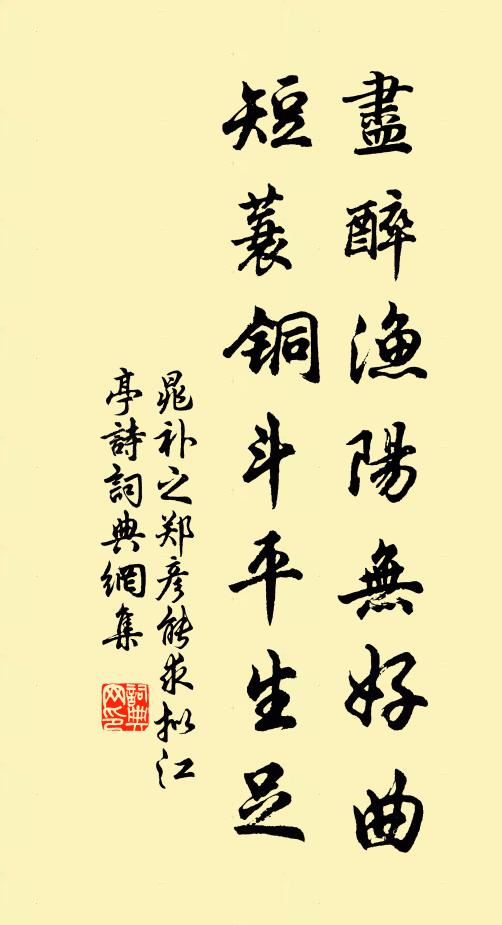 盡醉漁陽無好曲
短蓑銅斗平生足
晁补之郑彦能求拟江
亭詩詞典網集
詞典网印